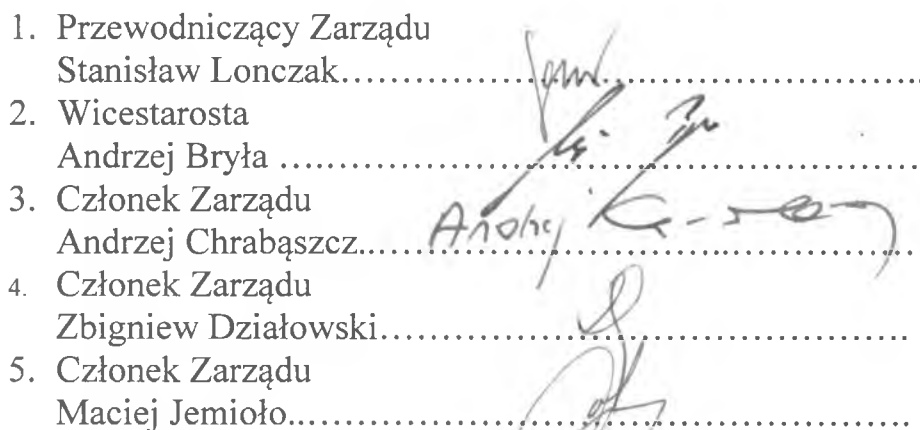 1. Przewodniczący Zarządu
Stanisław Lonczak..........................................................
2. Wicestarosta
Andrzej Bryła ..........................................................
3. Członek Zarządu
Andrzej Chrabąszcz.......................................................... Andrzej
4. Członek Zarządu
Zbigniew Działowski..........................................................
5. Członek Zarządu
Maciej Jemioło..........................................................